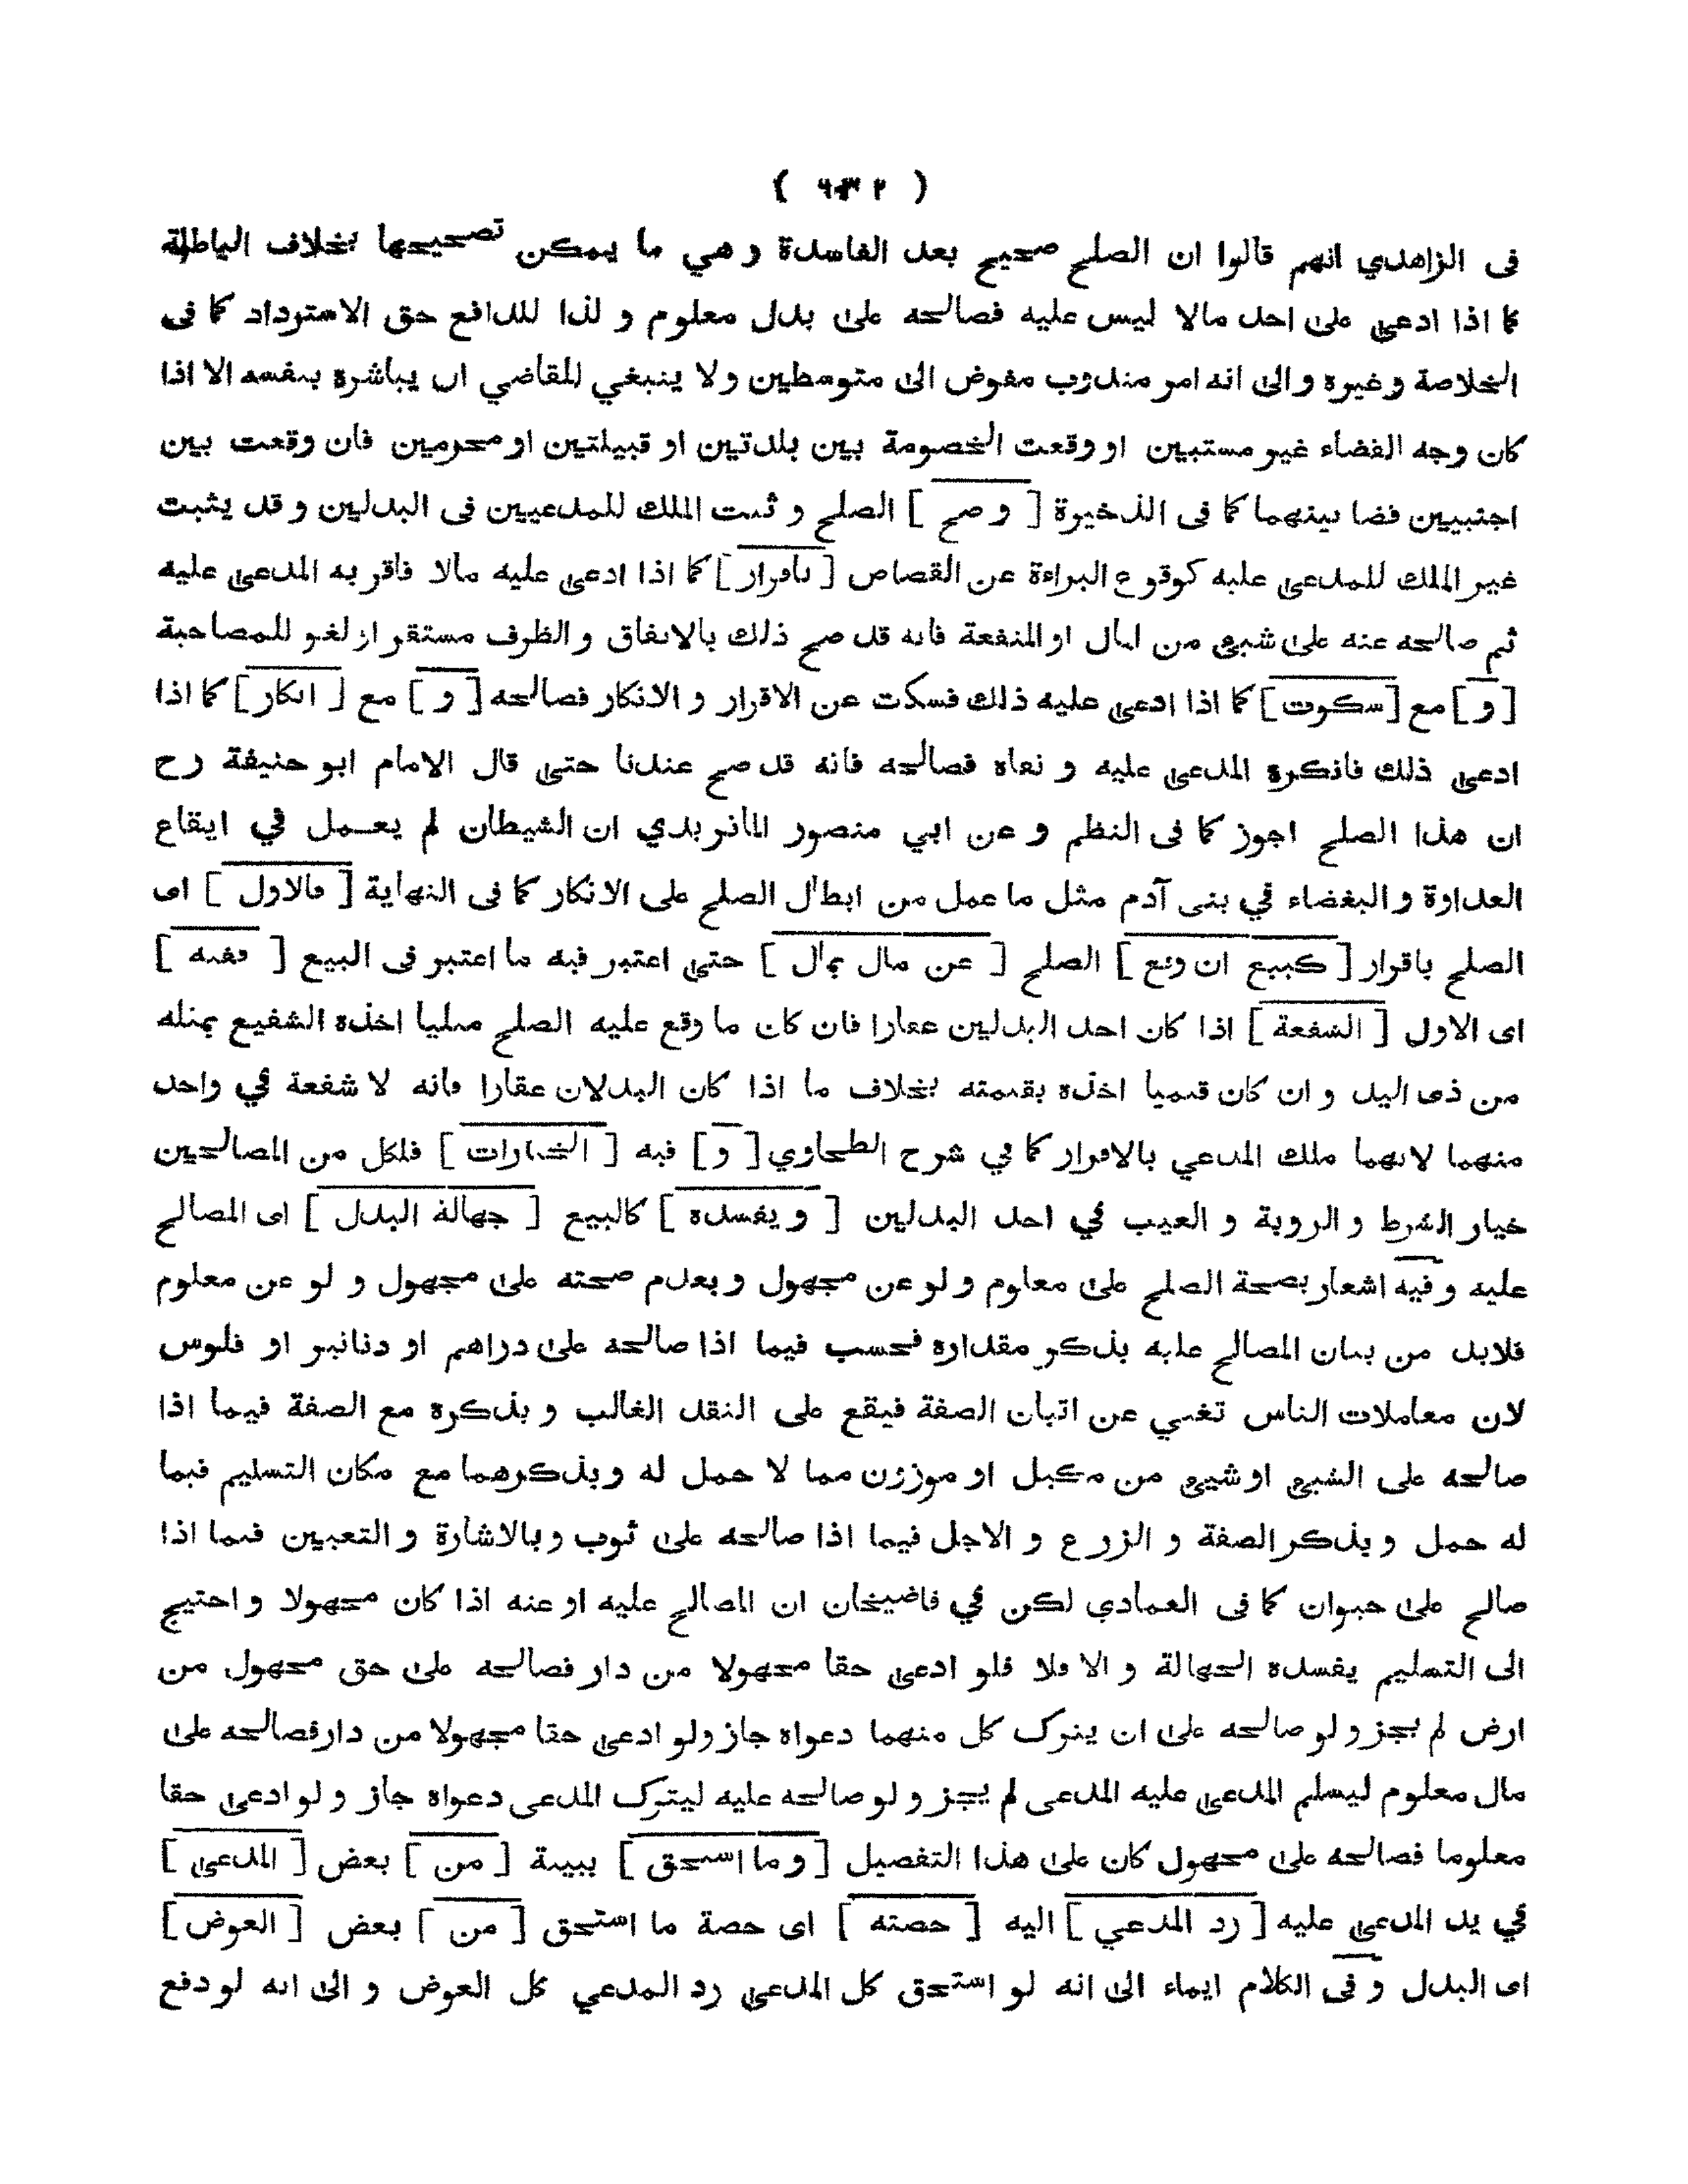 ( ٦٣٢ )
فى الزاهدي انهم قالوا ان الصلح صحيح بعد الفاسدة و هي ما يمكن تصحيحها بخلاف الباطلة
كما اذا ادعى على احد مالا ليس عليه فصالحه على بدل معلوم و لذا للدافع حق الاسترداد كما فى
الخلاصة وغيره والى انه امر مندوب مفوض الى متوسطين ولا ينبغي للقاضي ان يباشره بنفسه الا اذا
كان وجه القضاء غير مستبين او وقعت الخصومة بين بلدتين او قبيلتين او محرمين فان وقعت بين
اجنبيين قضا بينهما كما فى الذخيرة [ و صح ] الصلح و ثبت الملك للمدعيين فى البدلين و قد يثبت
غير الملك للمدعى عليه كوقوع البراءة عن القصاص [ باقرار ] كما اذا ادعى عليه مالا فاقر به المدعى عليه
ثم صالحه عنه على شيء من المال او المنفعة فانه قد صح ذلك بالاتفاق و الظرف مستقر او لغو للمصاحبة
[ و ] مع [ سكوت ] كما اذا ادعى عليه ذلك فسكت عن الاقرار و الانكار فصالحه [ و ] مع [ انكار ] كما اذا
ادعى ذلك فانكره المدعى عليه و نفاه فصالحه فانه قد صح عندنا حتى قال الامام ابو حنيفة رح
ان هذا الصلح اجوز كما فى النظم و عن ابي منصور الماتريدي ان الشيطان لم يعمل في ايقاع
العداوة و البغضاء في بنى آدم مثل ما عمل من ابطال الصلح على الانكار كما فى النهاية [ فالاول ] اى
الصلح باقرار [ كبيع ان وقع ] الصلح [ عن مال بمال ] حتى اعتبر فيه ما اعتبر فى البيع [ ففيه ]
اى الاول [ الشفعة ] اذا كان احد البدلين عقارا فان كان ما وقع عليه الصلح مثليا اخذه الشفيع بمثله
من ذى اليد و ان كان قيميا اخذه بقيمته بخلاف ما اذا كان البدلان عقارا فانه لا شفعة في واحد
منهما لانهما ملك المدعي بالاقرار كما في شرح الطحاوي [ و ] فيه [ الخيارات ] فلكل من المصالحين
خيار الشرط و الروية و العيب في احد البدلين [ و يفسده ] كالبيع [ جهالة البدل ] اى المصالح
عليه و فيه اشعار بصحة الصلح على معلوم و لو عن مجهول و بعدم صحته على مجهول و لو عن معلوم
فلابد من بيان المصالح عليه بذكر مقداره فحسب فيما اذا صالحه على دراهم او دنانير او فلوس
لان معاملات الناس تغني عن اتيان الصفة فيقع على النقد الغالب و بذكره مع الصفة فيما اذا
صالحه على الشيء او شيء من مكيل او موزون مما لا حمل له وبذكرهما مع مكان التسليم فيما
له حمل و بذكر الصفة و الزرع و الاجل فيما اذا صالحه على ثوب وبالاشارة و التعيين فيما اذا
صالح على حيوان كما فى العمادي لكن في قاضيخان ان المصالح عليه او عنه اذا كان مجهولا و احتيج
الى التسليم يفسده الجهالة و الا فلا فلو ادعى حقا مجهولا من دار فصالحه على حق مجهول من
ارض لم يجز و لو صالحه على ان يترك كل منهما دعواه جاز ولو ادعى حقا مجهولا من دار فصالحه على
مال معلوم ليسلم المدعى عليه المدعى لم يجز و لو صالحه عليه ليترك المدعى دعواه جاز و لو ادعى حقا
معلوما فصالحه على مجهول كان على هذا التفصيل [ و ما استحق ] ببينة [ من ] بعض [ المدعى ]
في يد المدعى عليه [ رد المدعي ] اليه [ حصته ] اى حصة ما استحق [ من ] بعض [ العوض ]
اى البدل و فى الكلام ايماء الى انه لو استحق كل المدعى رد المدعي كل العوض و الى انه لو دفع